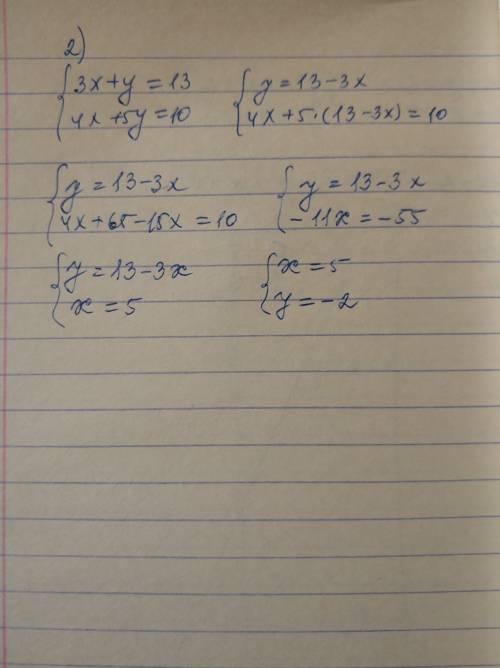 2)
3x+y=13
4x+5y=10
y=13-3x
4x+5·(13-3x)=10
y=13-3x
4x+65-15x=10
y=13-3x
-11x=-55
y=13-3x
x=5
x=5
y=-2